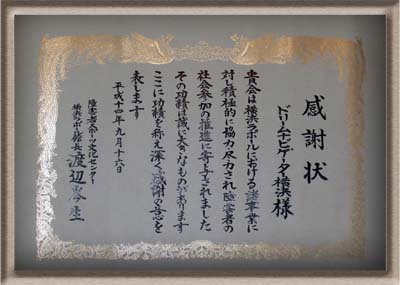 感謝状
ドリームナビゲータ横浜様
貴会は横浜ラポールにおける諸事業に
対し積極的に協力尽力され障害者の
社会参加の推進に寄与されました
その功績は誠に大きなものがあります
ここに功績を称え深く感謝の意を
表します
平成十四年九月十六日
障害者スポーツ文化センター
横浜ラポール館長 渡辺